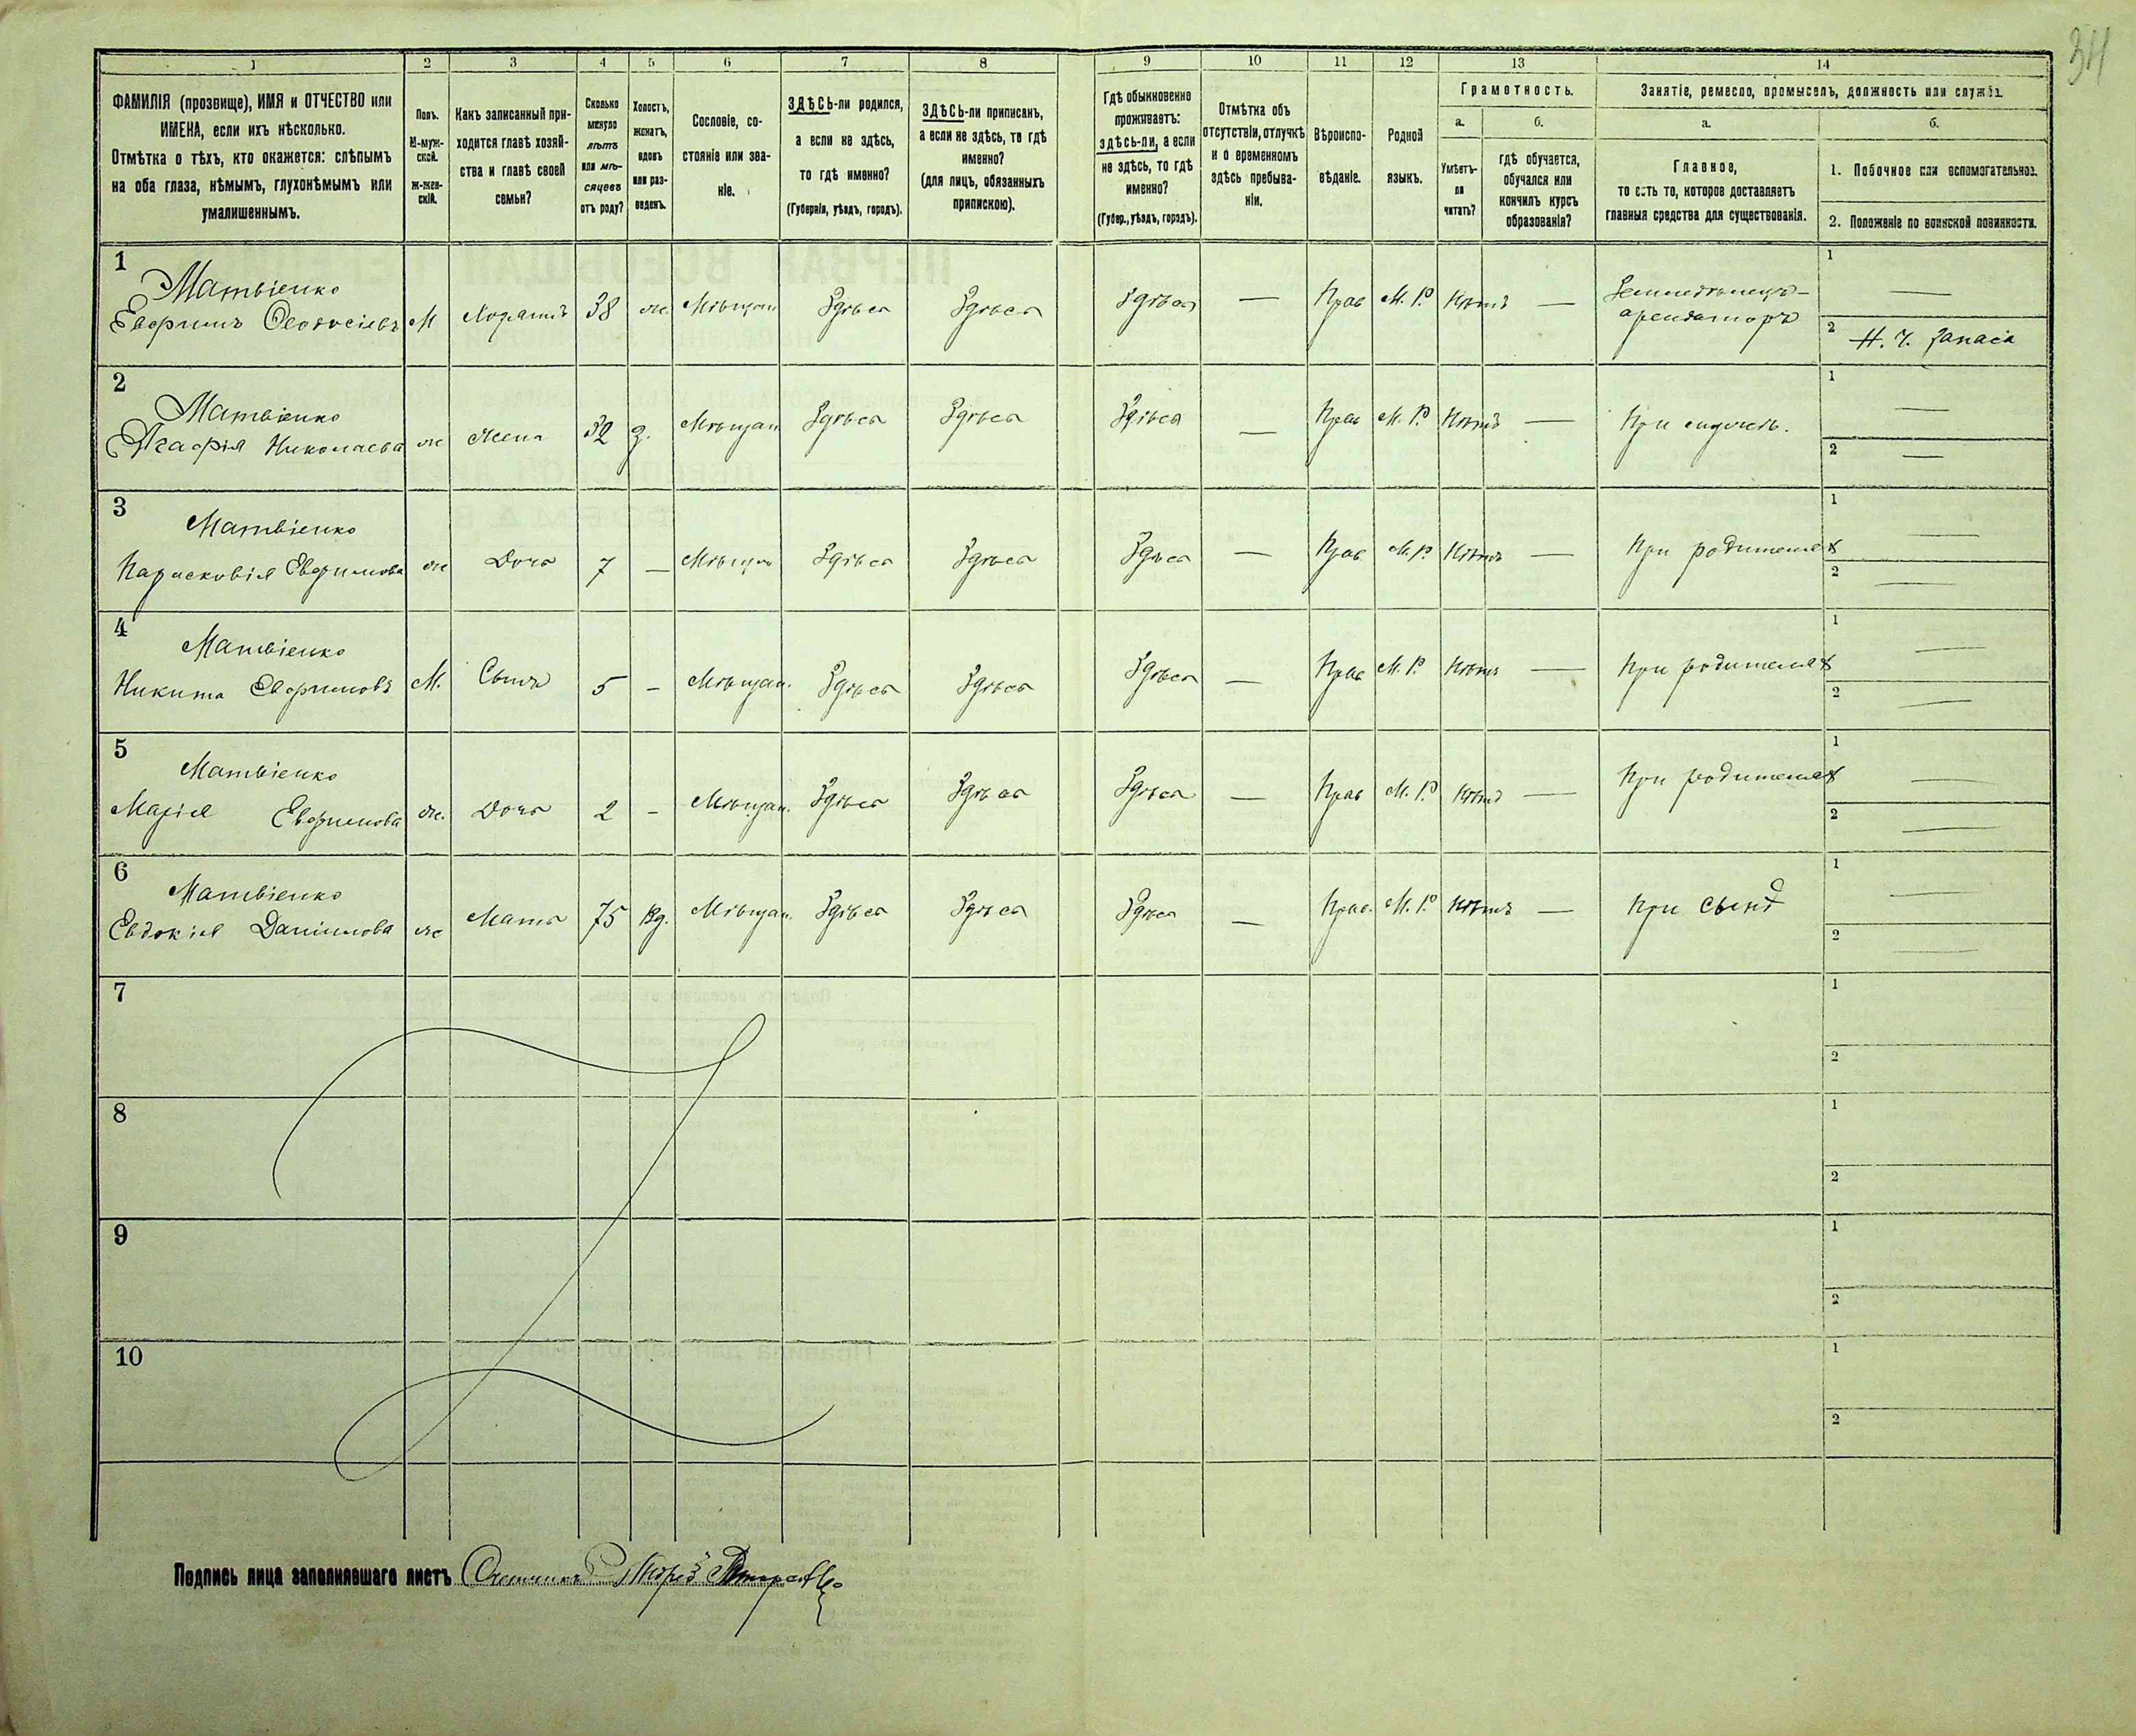 34
1 2 3 4 5 6 7 8 9 10 11 12 13 14
ФАМИЛІЯ (прозвище), ИМЯ и ОТЧЕСТВО или
ИМЕНА, если ихъ нѣсколько.
Отмѣтка о тѣхъ, кто окажется: слѣпымъ
на оба глаза, нѣмымъ, глухонѣмымъ или
умалишеннымъ.
Полъ.
М-муж-
ской.
Ж-жен-
скій.
Какъ записанный при-
ходится главѣ хозяй-
ства и главѣ своей
семьи?
Сколько
минуло
лѣтъ
или мѣ-
сяцевъ
отъ роду?
Холостъ,
женатъ,
вдовъ
или раз-
веденъ.
Сословіе, со-
стояніе или зва-
ніе.
ЗДѢСЬ-ли родился,
а если не здѣсь,
то гдѣ именно?
(Губернія, уѣздъ, городъ).
ЗДѢСЬ-ли приписанъ,
а если не здѣсь, то гдѣ
именно?
(для лицъ, обязанныхъ
припискою).
Гдѣ обыкновенно
проживаетъ:
здѣсь-ли, а если
не здѣсь, то гдѣ
именно?
(Губер., уѣздъ, городъ).
Отмѣтка объ
отсутствіи, отлучкѣ
и о временномъ
здѣсь пребыва-
ніи.
Вѣроиспо-
вѣданіе.
Родной
языкъ.
Грамотность.
а.
Умѣетъ-
ли
читать?
б.
гдѣ обучается,
обучался или
кончилъ курсъ
образованія?
Занятіе, ремесло, промыселъ, должность или служба.
а.
Главное,
то есть то, которое доставляетъ
главныя средства для существованія.
б.
1. Побочное или вспомогательное.
2. Положеніе по воинской повинности.
1
Матвіенко
Евфимъ Феодосіевъ М 38 Мѣщан Здѣсь Здѣсь Здѣсь — Прав М. Р. Нѣтъ —
Земледѣлецъ-
арендаторъ
1 —
2 Н. Ч. Запаса
2
Матвіенко
Агафія Николаева ж жена 32 З. Мѣщан Здѣсь Здѣсь Здѣсь — Прав М. Р. Нѣтъ —
1 —
2 —
3
Матвіенко
Парасковія Евфимова ж Дочь 7 — Мѣщан Здѣсь Здѣсь Здѣсь — Прав М. Р. Нѣтъ — При родителях
1 —
2 —
4
Матвіенко
Никита Евфимовъ М. Сынъ 5 — Мѣщан. Здѣсь Здѣсь Здѣсь — Прав М. Р. Нѣтъ — При родителях
1 —
2 —
5
Матвіенко
Марія Евфимова ж. Дочь 2 — Мѣщан. Здѣсь Здѣсь Здѣсь — Прав М. Р. Нѣтъ — При родителях
1 —
2 —
6
Матвіенко
Евдокія Даніилова ж Мать 75 Вд. Мѣщан. Здѣсь Здѣсь Здѣсь — Прав. М. Р. Нѣтъ — При сынѣ
1 —
2 —
7
1
2
8
1
2
9
1
2
10
1
2
Подпись лица заполнявшаго листъ Счетчикъ